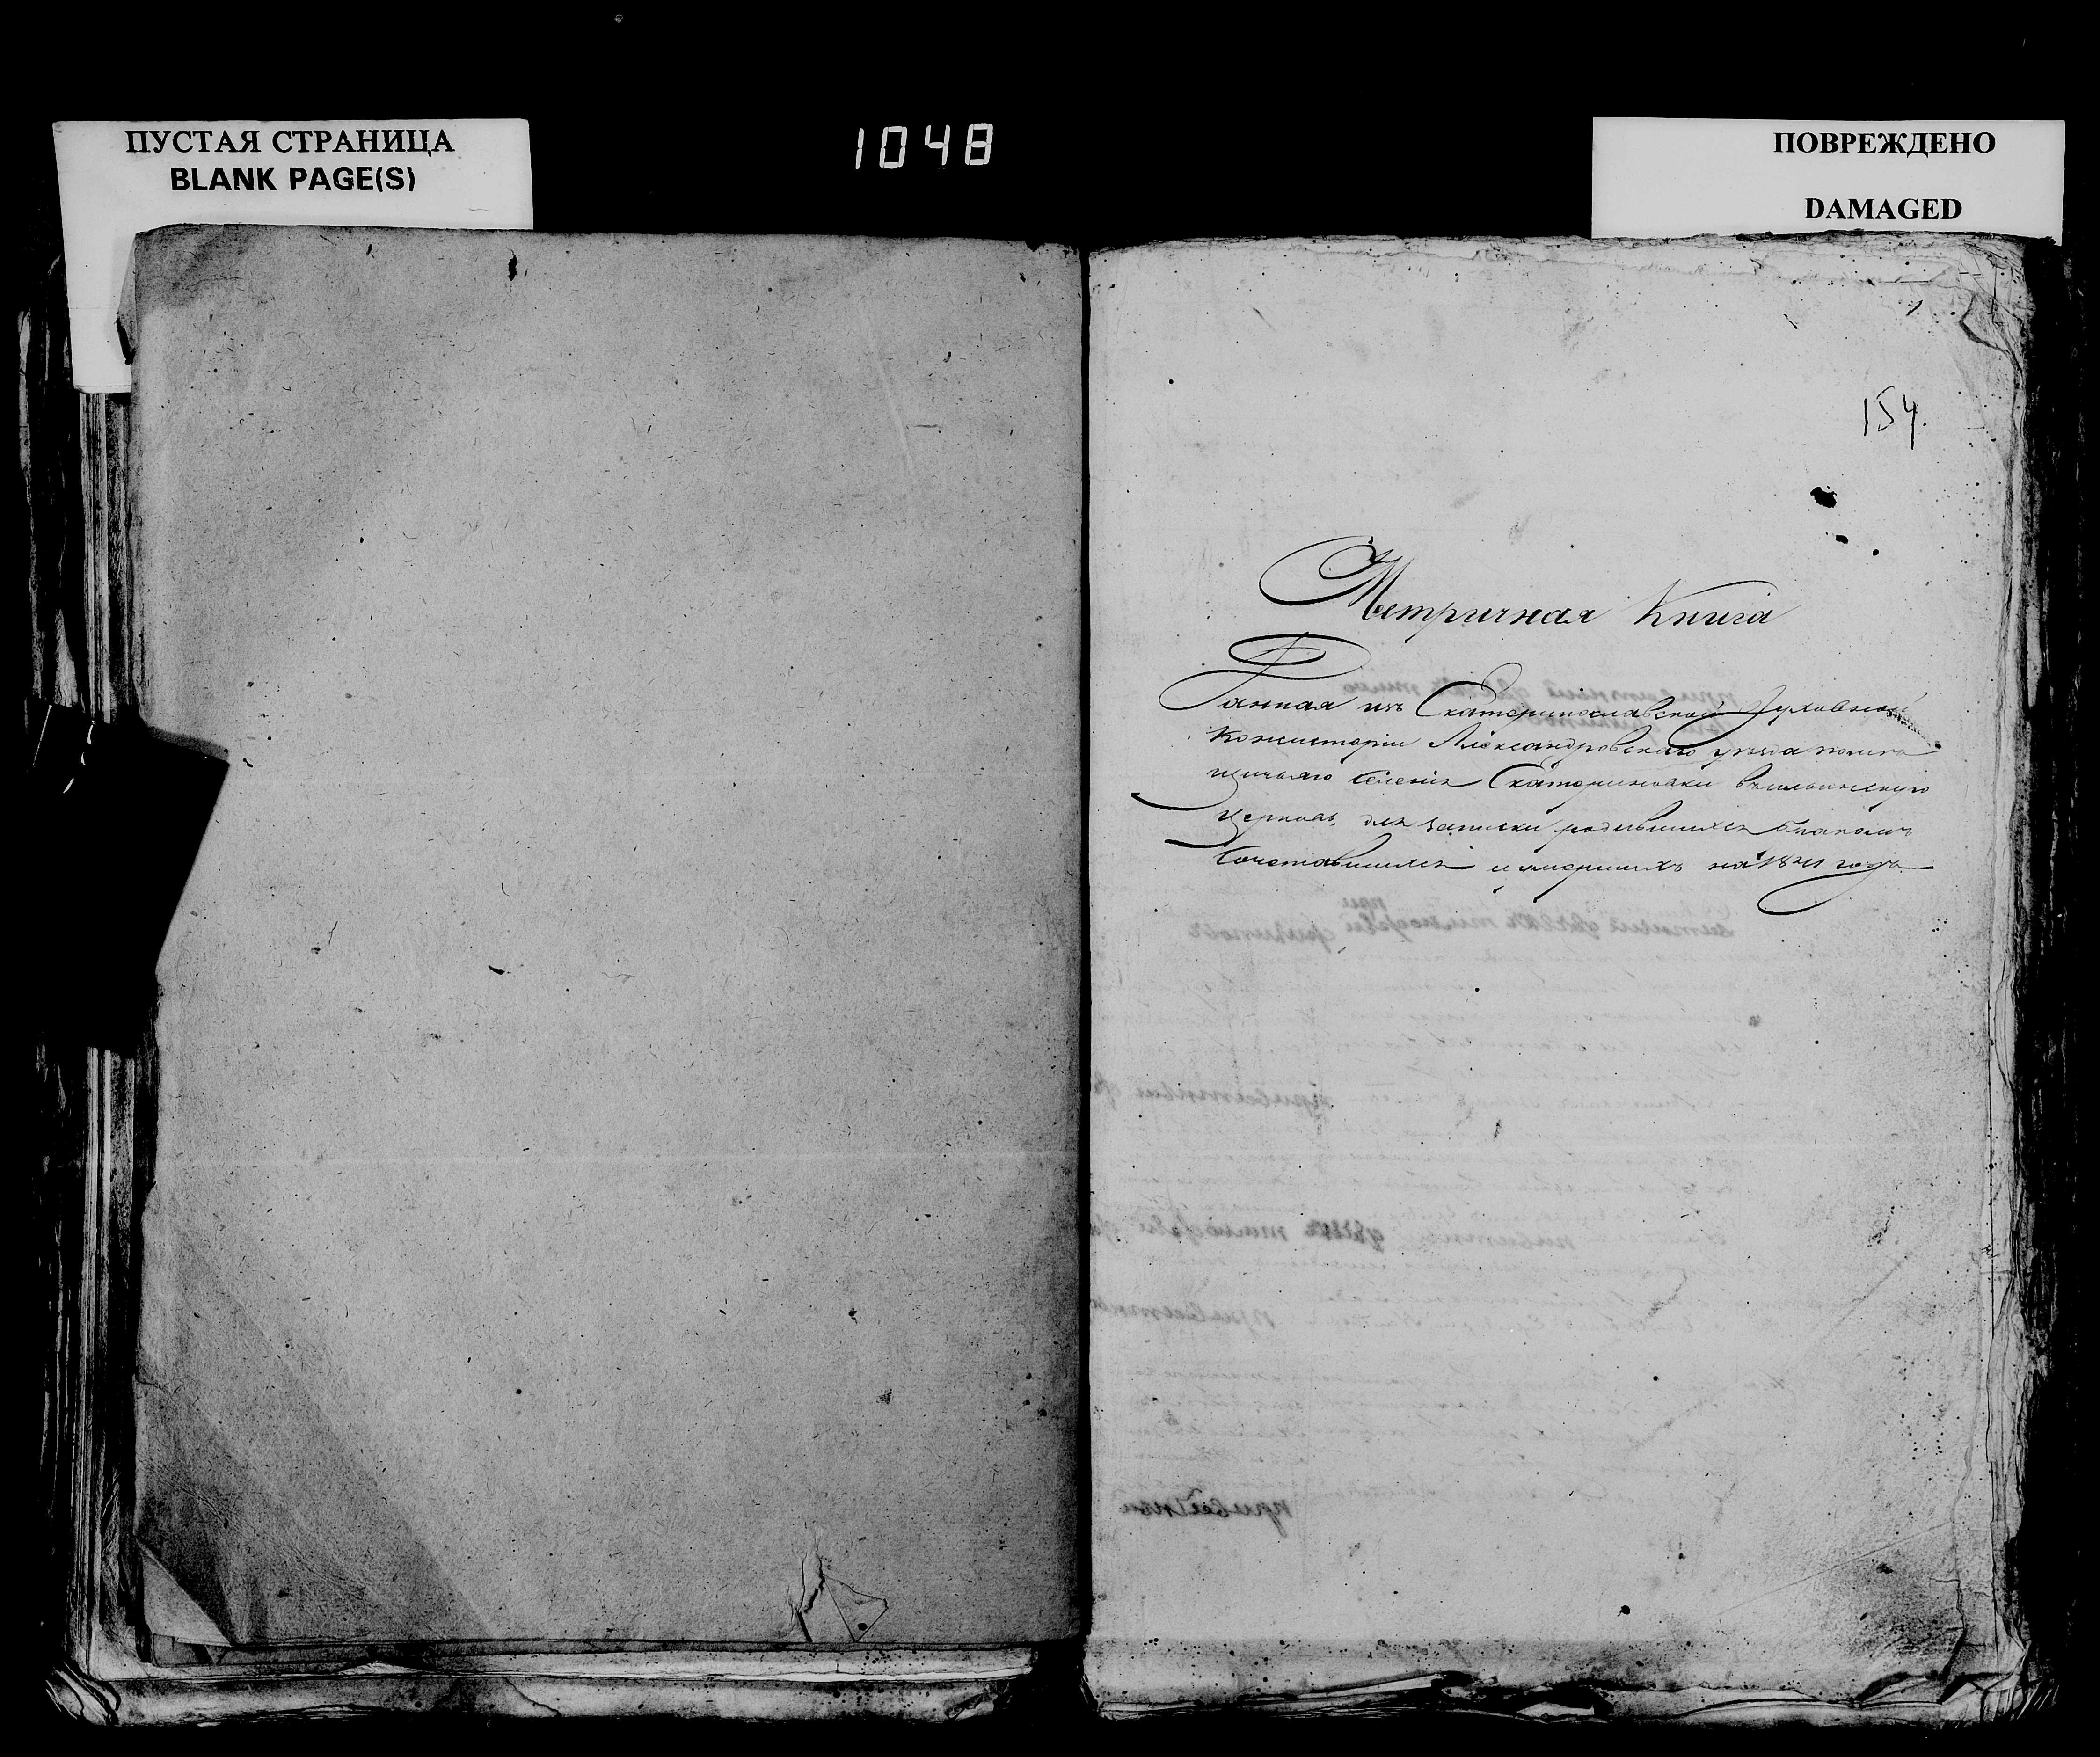 ПУСТАЯ СТРАНИЦА
BLANK PAGE(S)
1048
ПОВРЕЖДЕНО
DAMAGED
154.
Метричная Книга
Данная изъ Екатеринославской Духовной
Консисторіи Александровского уезда
Селенія Екатериновки
церковь для записки родившихся бракомъ
Сочетавшихся и умершихъ на 1841 годъ